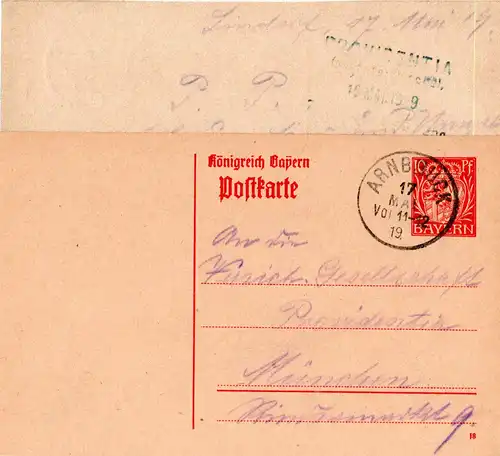 Lindorf, 17. Mai 19.
PROVIDENTIA
18. MAI. 19 9
P. P.
Königreich Bayern
Postkarte
10 Pf
BAYERN
ARNBRUCK
17
MAI
Vor 11-12
19.
An die
Versich. Gesellschaft
Providentia
München
Rindermarkt 9
18